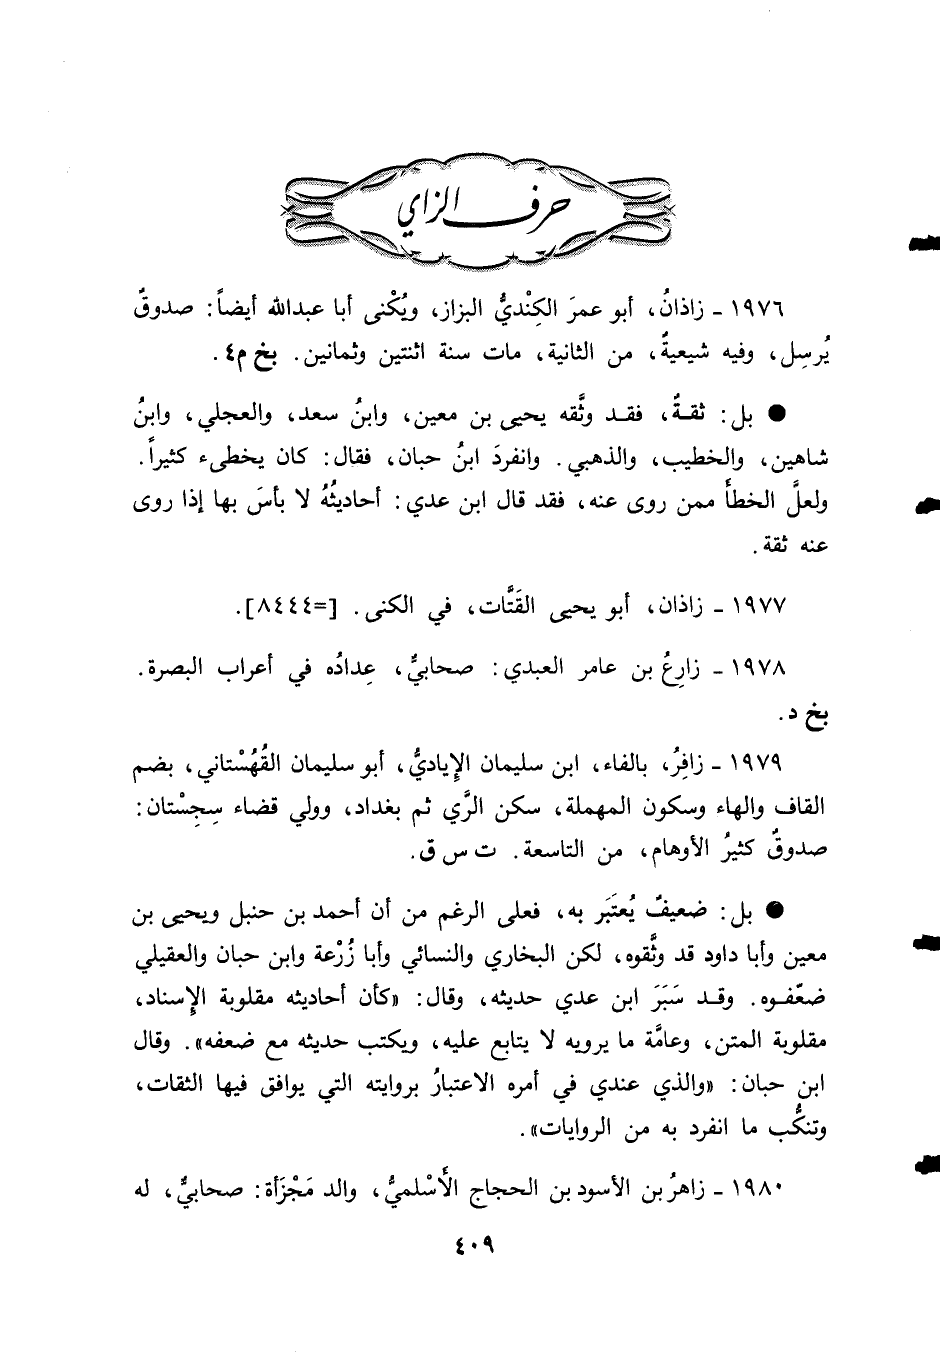 حرف الزاي
١٩٧٦ - زاذانُ، أبو عمرَ الكِنْديُّ البزاز، ويُكْنى أبا عبدالله أيضاً: صدوقٌ
يُرسِل، وفيه شيعيةٌ، من الثانية، مات سنة اثنتين وثمانين. بخ م٤.
● بل: ثقةٌ، فقد وثَّقه يحيى بن معين، وابنُ سعد، والعجلي، وابنُ
شاهين، والخطيب، والذهبي. وانفردَ ابنُ حبان، فقال: كان يخطىء كثيراً.
ولعلَّ الخطأَ ممن روى عنه، فقد قال ابن عدي: أحاديثُهُ لا بأسَ بها إذا روى
عنه ثقة.
١٩٧٧ - زاذان، أبو يحيى القَتَّات، في الكنى. [=٨٤٤٤].
١٩٧٨ - زارِعُ بن عامر العبدي: صحابيٌّ، عِدادُه في أعراب البصرة.
بخ د.
١٩٧٩ - زافِرُ، بالفاء، ابن سليمان الإِياديُّ، أبو سليمان القُهُسْتاني، بضم
القاف والهاء وسكون المهملة، سكن الرَّي ثم بغداد، وولي قضاء سِجِسْتان:
صدوقٌ كثيرُ الأوهام، من التاسعة. ت س ق.
● بل: ضعيفٌ يُعتَبَر به، فعلى الرغم من أن أحمد بن حنبل ويحيى بن
معين وأبا داود قد وثَّقوه، لكن البخاري والنسائي وأبا زُرْعة وابن حبان والعقيلي
ضعّفوه. وقد سَبَرَ ابن عدي حديثه، وقال: «كأن أحاديثه مقلوبة الإِسناد،
مقلوبة المتن، وعامَّة ما يرويه لا يتابع عليه، ويكتب حديثه مع ضعفه». وقال
ابن حبان: «والذي عندي في أمره الاعتبارُ بروايته التي يوافق فيها الثقات،
وتنكُّب ما انفرد به من الروايات».
١٩٨٠ - زاهرُ بن الأسود بن الحجاج الأَسْلميُّ، والد مَجْزَأة: صحابيٌّ، له
٤٠٩